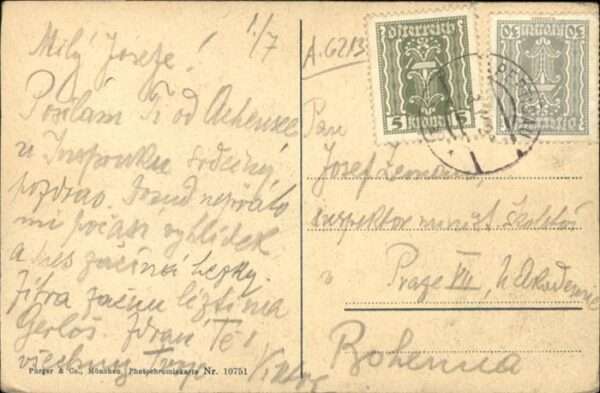 1/7
Milý Josefe!
Posílám Ti od Achensee
u Insprucku srdečný
pozdrav. Dosud nepřálo
mi počasí vyhlídek
a dnes začíná hezky.
Zítra začnu lézti na
Gerlos. Zdraví Tě i
všechny Tvoje
Viktor
A.G213
Österreich
5 Kronen 5
Österreich
Pan
Josef Zeman
inspektor minist. školství
v
Praze VII, U Akademie
Bohemia
Purger & Co., München, Photochromiekarte Nr. 10751